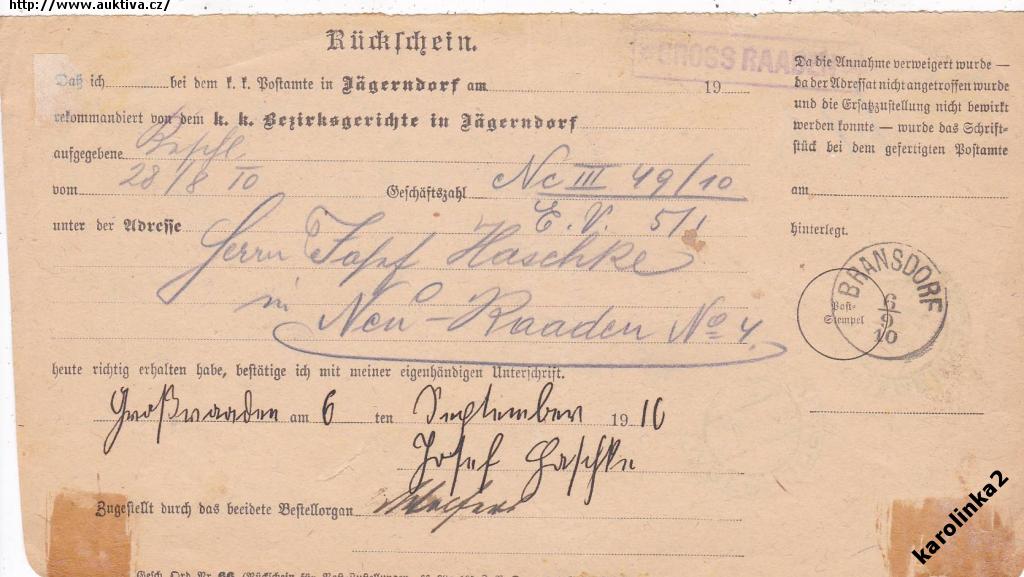 http://www.auktiva.cz/
Rückschein.
GROSS RAADEN
Daß ich bei dem k. k. Postamte in Jägerndorf am 19
rekommandiert von dem k. k. Bezirksgerichte in Jägerndorf
aufgegebene Beschl.
vom 28/8 10 Geschäftszahl Nc III 49/10
unter der Adresse E. V. 5/1
Herrn Josef Haschke
in Neu-Raaden No 4.
heute richtig erhalten habe, bestätige ich mit meiner eigenhändigen Unterschrift.
Großraaden am 6 ten September 1910
Josef Haschke
Zugestellt durch das beeidete Bestellorgan
Da die Annahme verweigert wurde —
da der Adressat nicht angetroffen wurde
und die Ersatzzustellung nicht bewirkt
werden konnte — wurde das Schrift-
stück bei dem gefertigten Postamte
am
hinterlegt.
Post-
Stempel
BRANSDORF
6
9
10
Gesch. Ord. Nr. 66 (Rückschein für
karolinka2